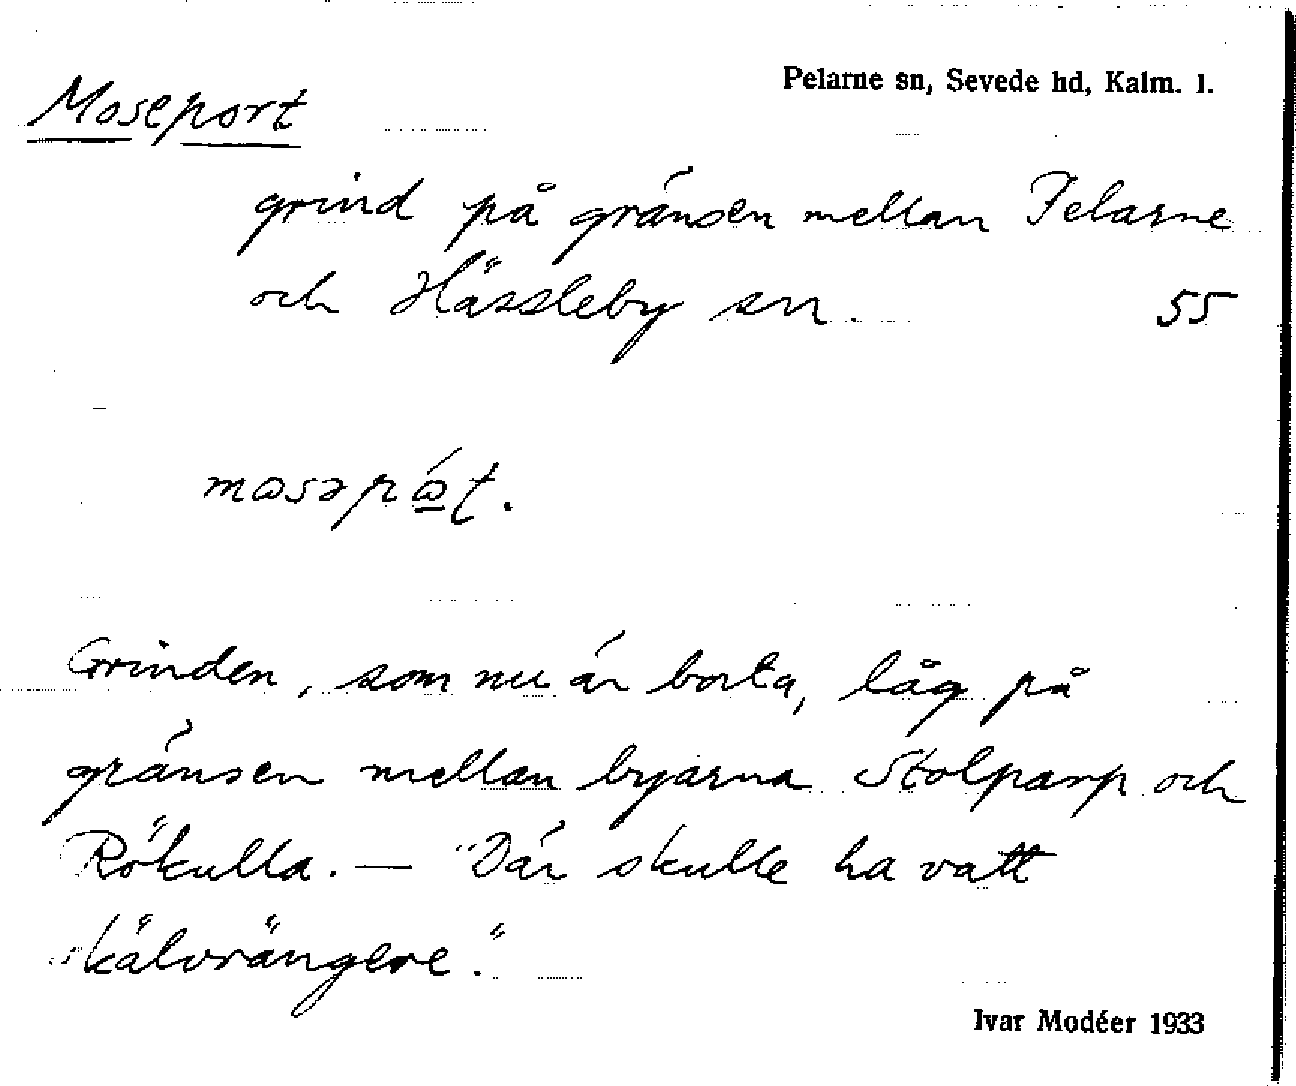 Pelarne sn, Sevede hd, Kalm. l.
Moseport
grind på gränsen mellan Pelarne
och Hässleby snr. 55
mɷsəpɷ́ʈ.
Grinden, som nu är borta, låg på
gränsen mellan byarna Stolparp och
Rökulla. — "Där skulle ha vatt
skälvrängere."
Ivar Modéer 1933